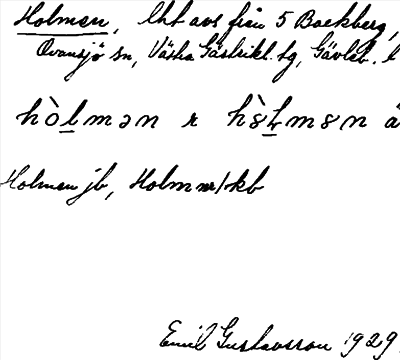 Holmen, lht avs från 5 Backberg,
Ovansjö sn, Västra Gästrikl. tg, Gävleb. l
hòlmən r hò̵lmən å
Holmen jb, Holm nr 1 kb
Emil Gustavsson 1929